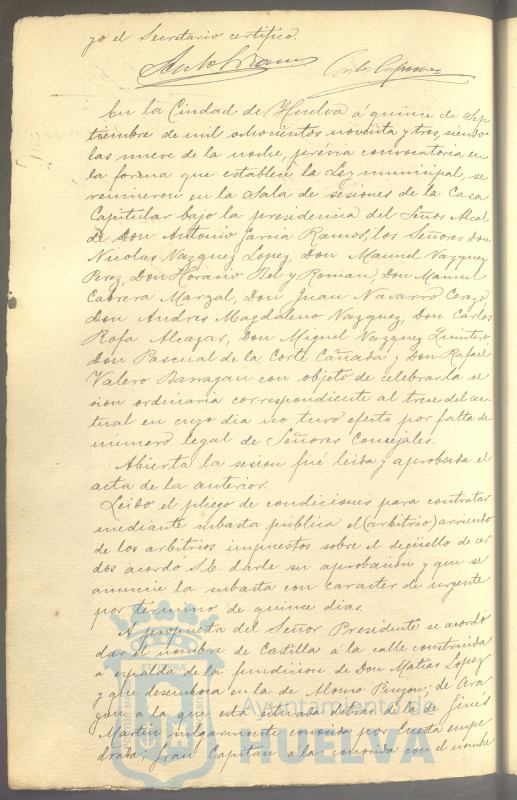 yo el Secretario certifico.
En la Ciudad de Huelva á quince de Sep
tiembre de mil ochocientos noventa y tres, siendo
las nueve de la noche, prévia convocatoria en
la forma que establece la Ley municipal, se
reunieron en la Sala de sesiones de la Casa
Capitular bajo la presidencia del Señor Alcal
de Don Antonio Garcia Ramos, los Señores Don
Nicolas Vazquez Lopez, Don Manuel Vazquez
Perez, Don Horacio Bel y Roman, Don Manuel
Cabrera Marzal, Don Juan Navarro Cerezo,
Don Andres Magdaleno Vazquez, Don Carlos
Rofa Alcazar, Don Miguel Vazquez Quintero,
Don Pascual de la Corte Cañada y Don Rafael
Valero Barragan con objeto de celebrar la se
sion ordinaria correspondiente al trece del ac-
tual en cuyo dia no tuvo efecto por falta de
número legal de Señores Concejales.
Abierta la sesion fué leida y aprobada el
acta de la anterior.
Leido el pliego de condiciones para contratar
mediante subasta pública el (arbitrio) arriendo
de los arbitrios impuestos sobre el degüello de cer
dos acordo S.E. darle su aprobacion y que se
anuncie la subasta con caracter de urgente
por término de quince dias.
A propuesta del Señor Presidente se acordo
dar el nombre de Castilla á la calle construida
a espalda de la fundicion de Don Matias Lopez
y que desemboca en la de Alonso Pinzon; de Ara
gon, a la que está situada detras de la de Ginés
Martin vulgarmente conocida por Cuesta empe
drada; Gran Capitan a la conocida con el nombre
Ayuntamiento de
HUELVA